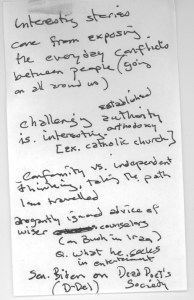 Interesting stories
come from exposing
the everyday conflicts
between people (going
on all around us)
established
challenging authority
is interesting orthodoxy
[ex. catholic church]
Conformity vs. independent
thinking, taking the path
less travelled
arrogantly ignored advice of
wiser counselors
(as Bush in Iraq)
a. what he sucks
in entertainment
Sen. Biden on Dead Poet's
(D-Del) Society